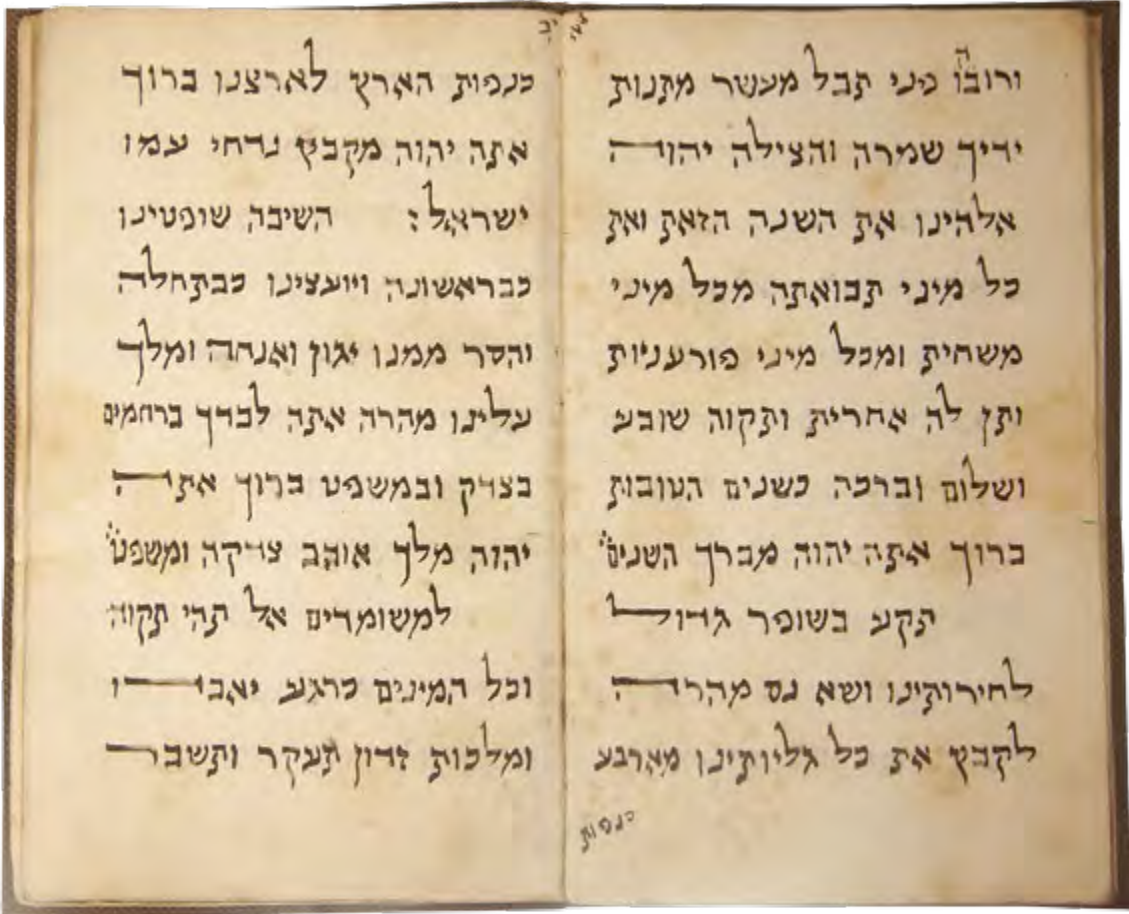 ורובה פני תבל מעשר מתנות
ידיך שמרה והצילה יהוה
אלהינו את השנה הזאת ואת
כל מיני תבואתה מכל מיני
משחית ומכל מיני פורעניות
ותן לה אחרית ותקוה שובע
ושלום וברכה כשנים הטובות
ברוך אתה יהוה מברך השנים
תקע בשופר גדול
לחירותינו ושא נס מהרה
לקבץ את כל גליותינו מארבע
כנפות
יב
כנפות הארץ לארצנו ברוך
אתה יהוה מקבץ נדחי עמו
ישראל: השיבה שופטינו
כבראשונה ויועצינו כבתחלה
והסר ממנו יגון ואנחה ומלך
עלינו מהרה אתה לבדך ברחמים
בצדק ובמשפט ברוך אתה
יהוה מלך אוהב צדקה ומשפט
למשומדים אל תהי תקוה
וכל המינים כרגע יאבדו
ומלכות זדון תעקר ותשבר